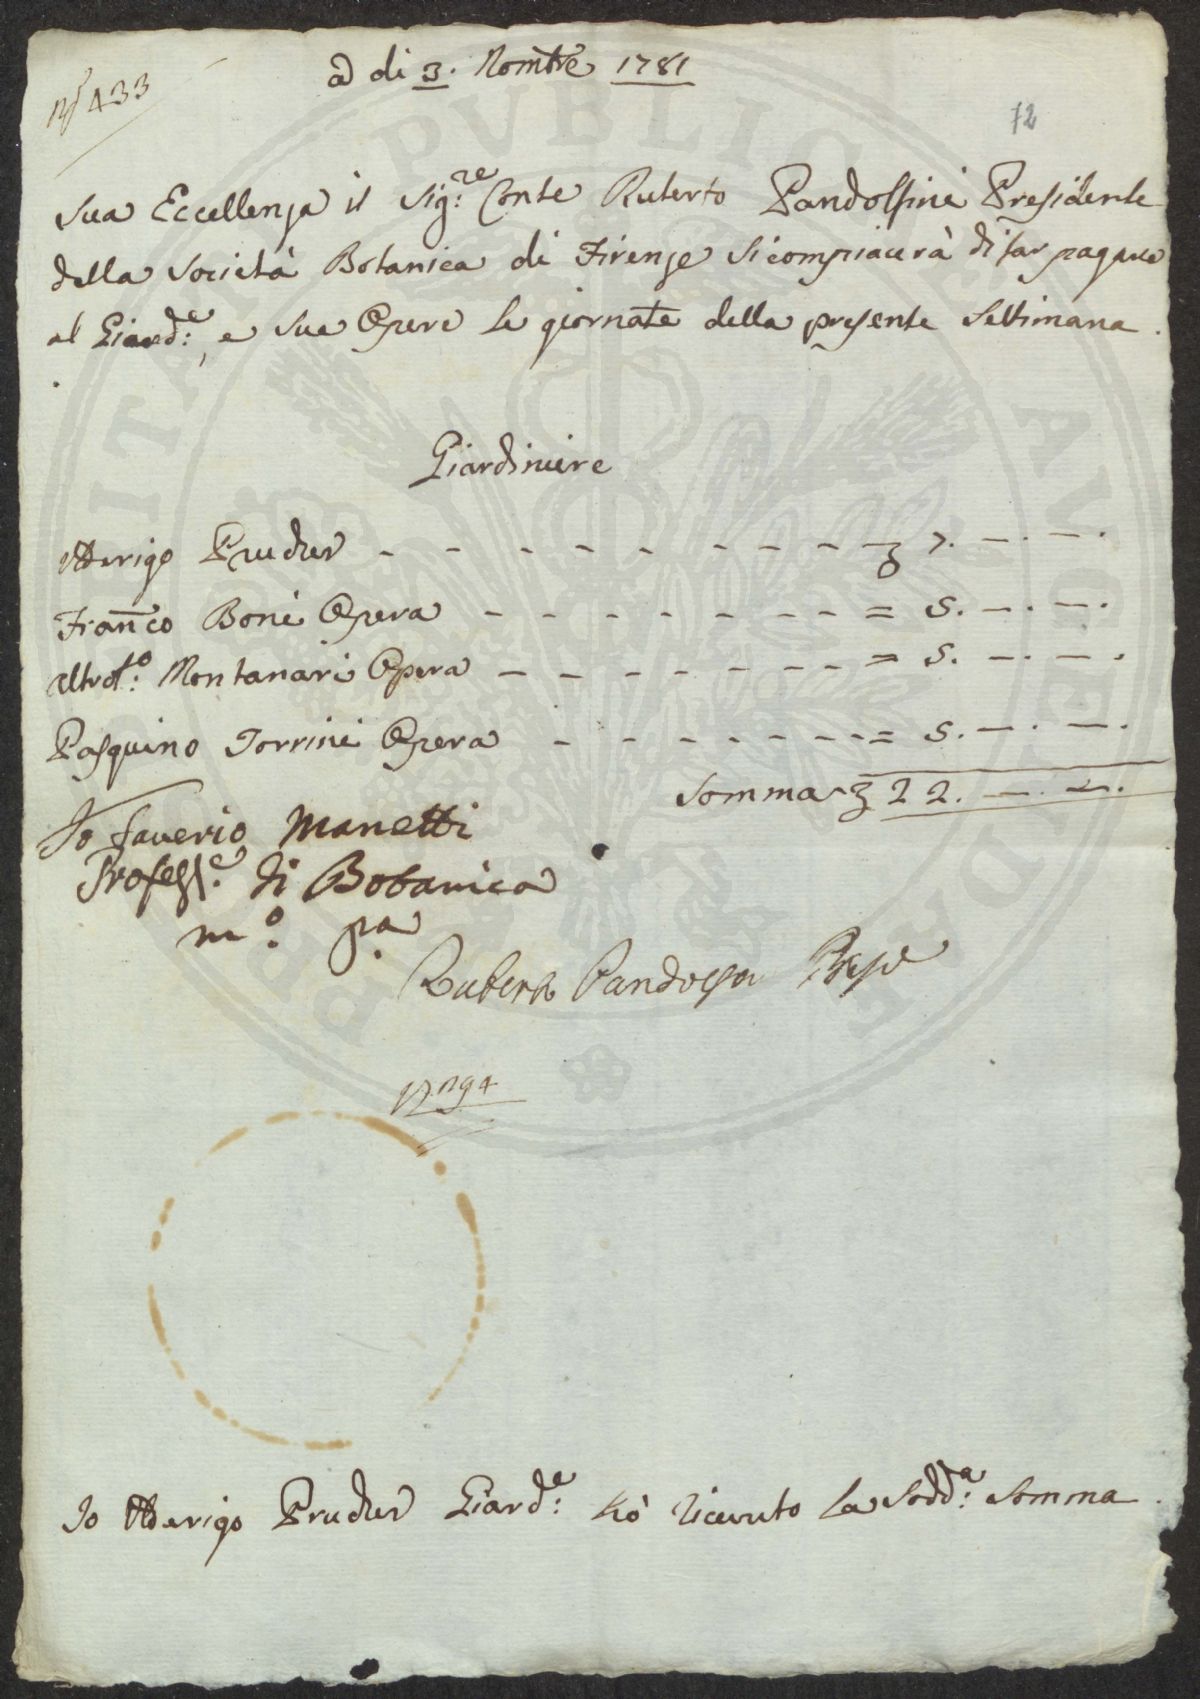 a di 3. Nombre 1781
N° 433
72
Sua Eccellenza il Sig:re Conte Ruberto Pandolfini Presidente
della Società Botanica di Firenze Si compiacerà di far pagare
al Giard:e, e sue Opere le giornate della presente Settimana.
Giardiniere
Arrigo Pruder - - - - - - - - - 7. —. —.
Franco Boni Opera - - - - - - - - = 5. —. —.
Montanari Opera - - - - - - - = 5. —. —.
Pasquino Torrini Opera - - - - - - = 5. —. —.
Somma 22. —. —.
Io Saverio Manetti
Profess:e di Botanica
m:o p:a
Ruberto Pandolfini Prese
Io Arrigo Pruder Giard:e hò ricevuto la Sodd:a Somma.